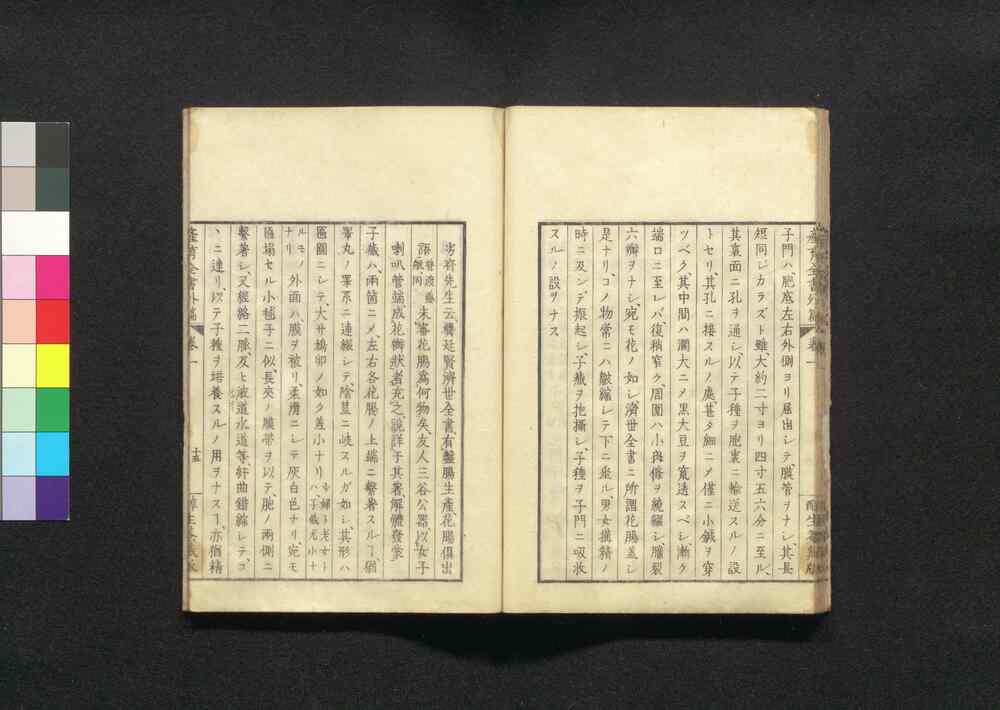 子門ハ、肥底左右外側ヨリ屈出シテ、膜管ヲナシ、其長
短同ジカラズト雖大約二寸ヨリ四寸五六分ニ至ル、
其裏面ニ孔ヲ通シ、以テ子種ヲ胞裏ニ輸送スルノ設
トセリ、其孔ニ接スルノ處、甚ダ細ニメ僅ニ小鍼ヲ穿
ツベク、其中間ハ濶大ニメ黒大豆ヲ寛透スベシ、漸ク
端口ニ至レバ、復稍窄ク、周圍ハ小與脩ヲ繞纙シ、擁裂
六瓣ヲナシ、宛モ花ノ如シ、濟世全書ニ所謂花腸蓋シ
是ナリ、コノ物常ニハ皺縮シテ下ニ垂ル、男女構精ノ
時ニ及ンデ振起シ、子藏ヲ抱攝シ、子種ヲ子門ニ吸收
スルノ設ヲナス
先生云、龔廷賢濟世全書、有盤腸生產、花腸俱出
語、未審花腸爲何物矣、友人三谷公器、以女子
喇叭管端成花瓣狀者充之、說詳于其著解體發蒙
子藏ハ、兩箇ニメ、左右各花腸ノ上端ニ繫著スルヿ、猶
睾丸ノ睪系ニ連綴シテ、陰莖ニ岐スルガ如シ、其形ハ
匾圓ニシテ、大サ鳩卵ノ如ク差小ナリ
ナリノ外面ハ膜ヲ被リ、柔膚ニシテ灰白色ナリ、宛モ
匾塌セル小毬子ニ似、長夾ノ膜帶ヲ以テ、胞ノ兩側ニ
繫著シ、又經絡二脈、及ヒ液道水道等、紆曲錯綜シテコ
ヽニ連リ、以テ子種ヲ培養スルノ用ヲナスヿ、亦猶精
產育全書外篇
卷一
十五